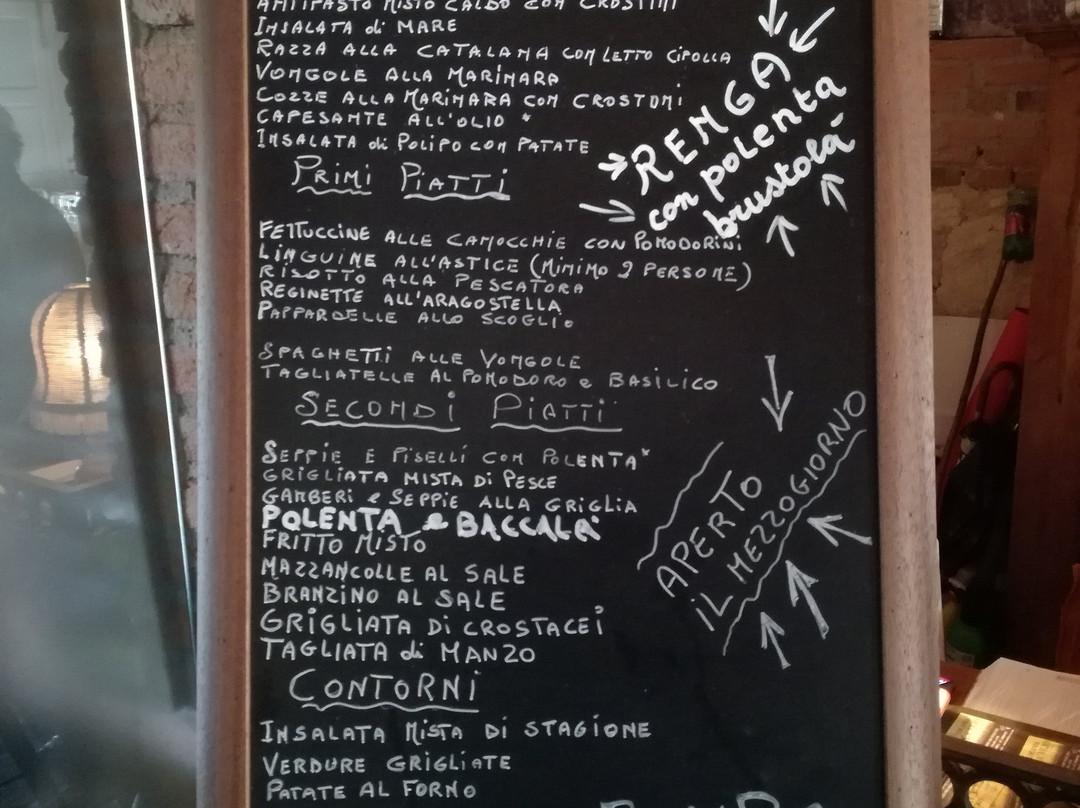 ANTIPASTO MISTO CALDO CON CROSTINI
INSALATA di MARE
RAZZA ALLA CATALANA CON LETTO CIPOLLA
VONGOLE ALLA MARINARA
COZZE ALLA MARINARA CON CROSTONI
CAPESANTE ALL'OLIO *
INSALATA di POLIPO CON PATATE
RENGA
con polenta
brustolà
PRIMI PIATTI
FETTUCCINE ALLE CANOCCHIE CON POMODORINI
LINGUINE ALL'ASTICE (MINIMO 2 PERSONE)
RISOTTO ALLA PESCATORA
REGINETTE ALL'ARAGOSTELLA
PAPPARDELLE ALLO SCOGLIO
SPAGHETTI ALLE VONGOLE
TAGLIATELLE AL POMODORO e BASILICO
SECONDI PIATTI
SEPPIE E PISELLI CON POLENTA*
GRIGLIATA MISTA DI PESCE
GAMBERI e SEPPIE ALLA GRIGLIA
POLENTA e BACCALA'
FRITTO MISTO
MAZZANCOLLE AL SALE
BRANZINO AL SALE
GRIGLIATA DI CROSTACEI
TAGLIATA di MANZO
APERTO
IL MEZZOGIORNO
CONTORNI
INSALATA MISTA DI STAGIONE
VERDURE GRIGLIATE
PATATE AL FORNO